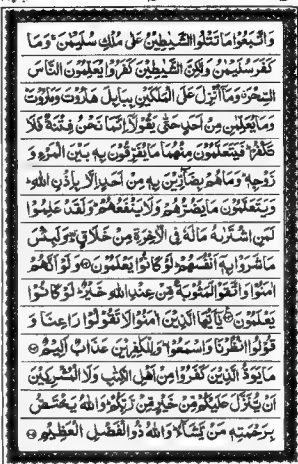 وَاتَّبَعُوا مَا تَتْلُوا الشَّيٰطِيْنُ عَلٰى مُلْكِ سُلَيْمٰنَ ۚ وَمَا
كَفَرَ سُلَيْمٰنُ وَلٰكِنَّ الشَّيٰطِيْنَ كَفَرُوْا يُعَلِّمُوْنَ النَّاسَ
السِّحْرَ ۗ وَمَآ اُنْزِلَ عَلَى الْمَلَكَيْنِ بِبَابِلَ هَارُوْتَ وَمَارُوْتَ ۗ
وَمَا يُعَلِّمٰنِ مِنْ اَحَدٍ حَتّٰى يَقُوْلَآ اِنَّمَا نَحْنُ فِتْنَةٌ فَلَا
تَكْفُرْ ۗ فَيَتَعَلَّمُوْنَ مِنْهُمَا مَا يُفَرِّقُوْنَ بِهٖ بَيْنَ الْمَرْءِ وَ
زَوْجِهٖ ۗ وَمَا هُمْ بِضَآرِّيْنَ بِهٖ مِنْ اَحَدٍ اِلَّا بِاِذْنِ اللّٰهِ ۗ
وَيَتَعَلَّمُوْنَ مَا يَضُرُّهُمْ وَلَا يَنْفَعُهُمْ ۗ وَلَقَدْ عَلِمُوْا
لَمَنِ اشْتَرٰىهُ مَا لَهٗ فِى الْاٰخِرَةِ مِنْ خَلَاقٍ ۗ وَلَبِئْسَ
مَا شَرَوْا بِهٖٓ اَنْفُسَهُمْ ۗ لَوْ كَانُوْا يَعْلَمُوْنَ ۝ وَلَوْ اَنَّهُمْ
اٰمَنُوْا وَاتَّقَوْا لَمَثُوْبَةٌ مِّنْ عِنْدِ اللّٰهِ خَيْرٌ ۗ لَوْ كَانُوْا
يَعْلَمُوْنَ ۝ يٰٓاَيُّهَا الَّذِيْنَ اٰمَنُوْا لَا تَقُوْلُوْا رَاعِنَا وَ
قُوْلُوا انْظُرْنَا وَاسْمَعُوْا ۗ وَلِلْكٰفِرِيْنَ عَذَابٌ اَلِيْمٌ ۝
مَا يَوَدُّ الَّذِيْنَ كَفَرُوْا مِنْ اَهْلِ الْكِتٰبِ وَلَا الْمُشْرِكِيْنَ
اَنْ يُّنَزَّلَ عَلَيْكُمْ مِّنْ خَيْرٍ مِّنْ رَّبِّكُمْ ۗ وَاللّٰهُ يَخْتَصُّ
بِرَحْمَتِهٖ مَنْ يَّشَآءُ ۗ وَاللّٰهُ ذُو الْفَضْلِ الْعَظِيْمِ ۝